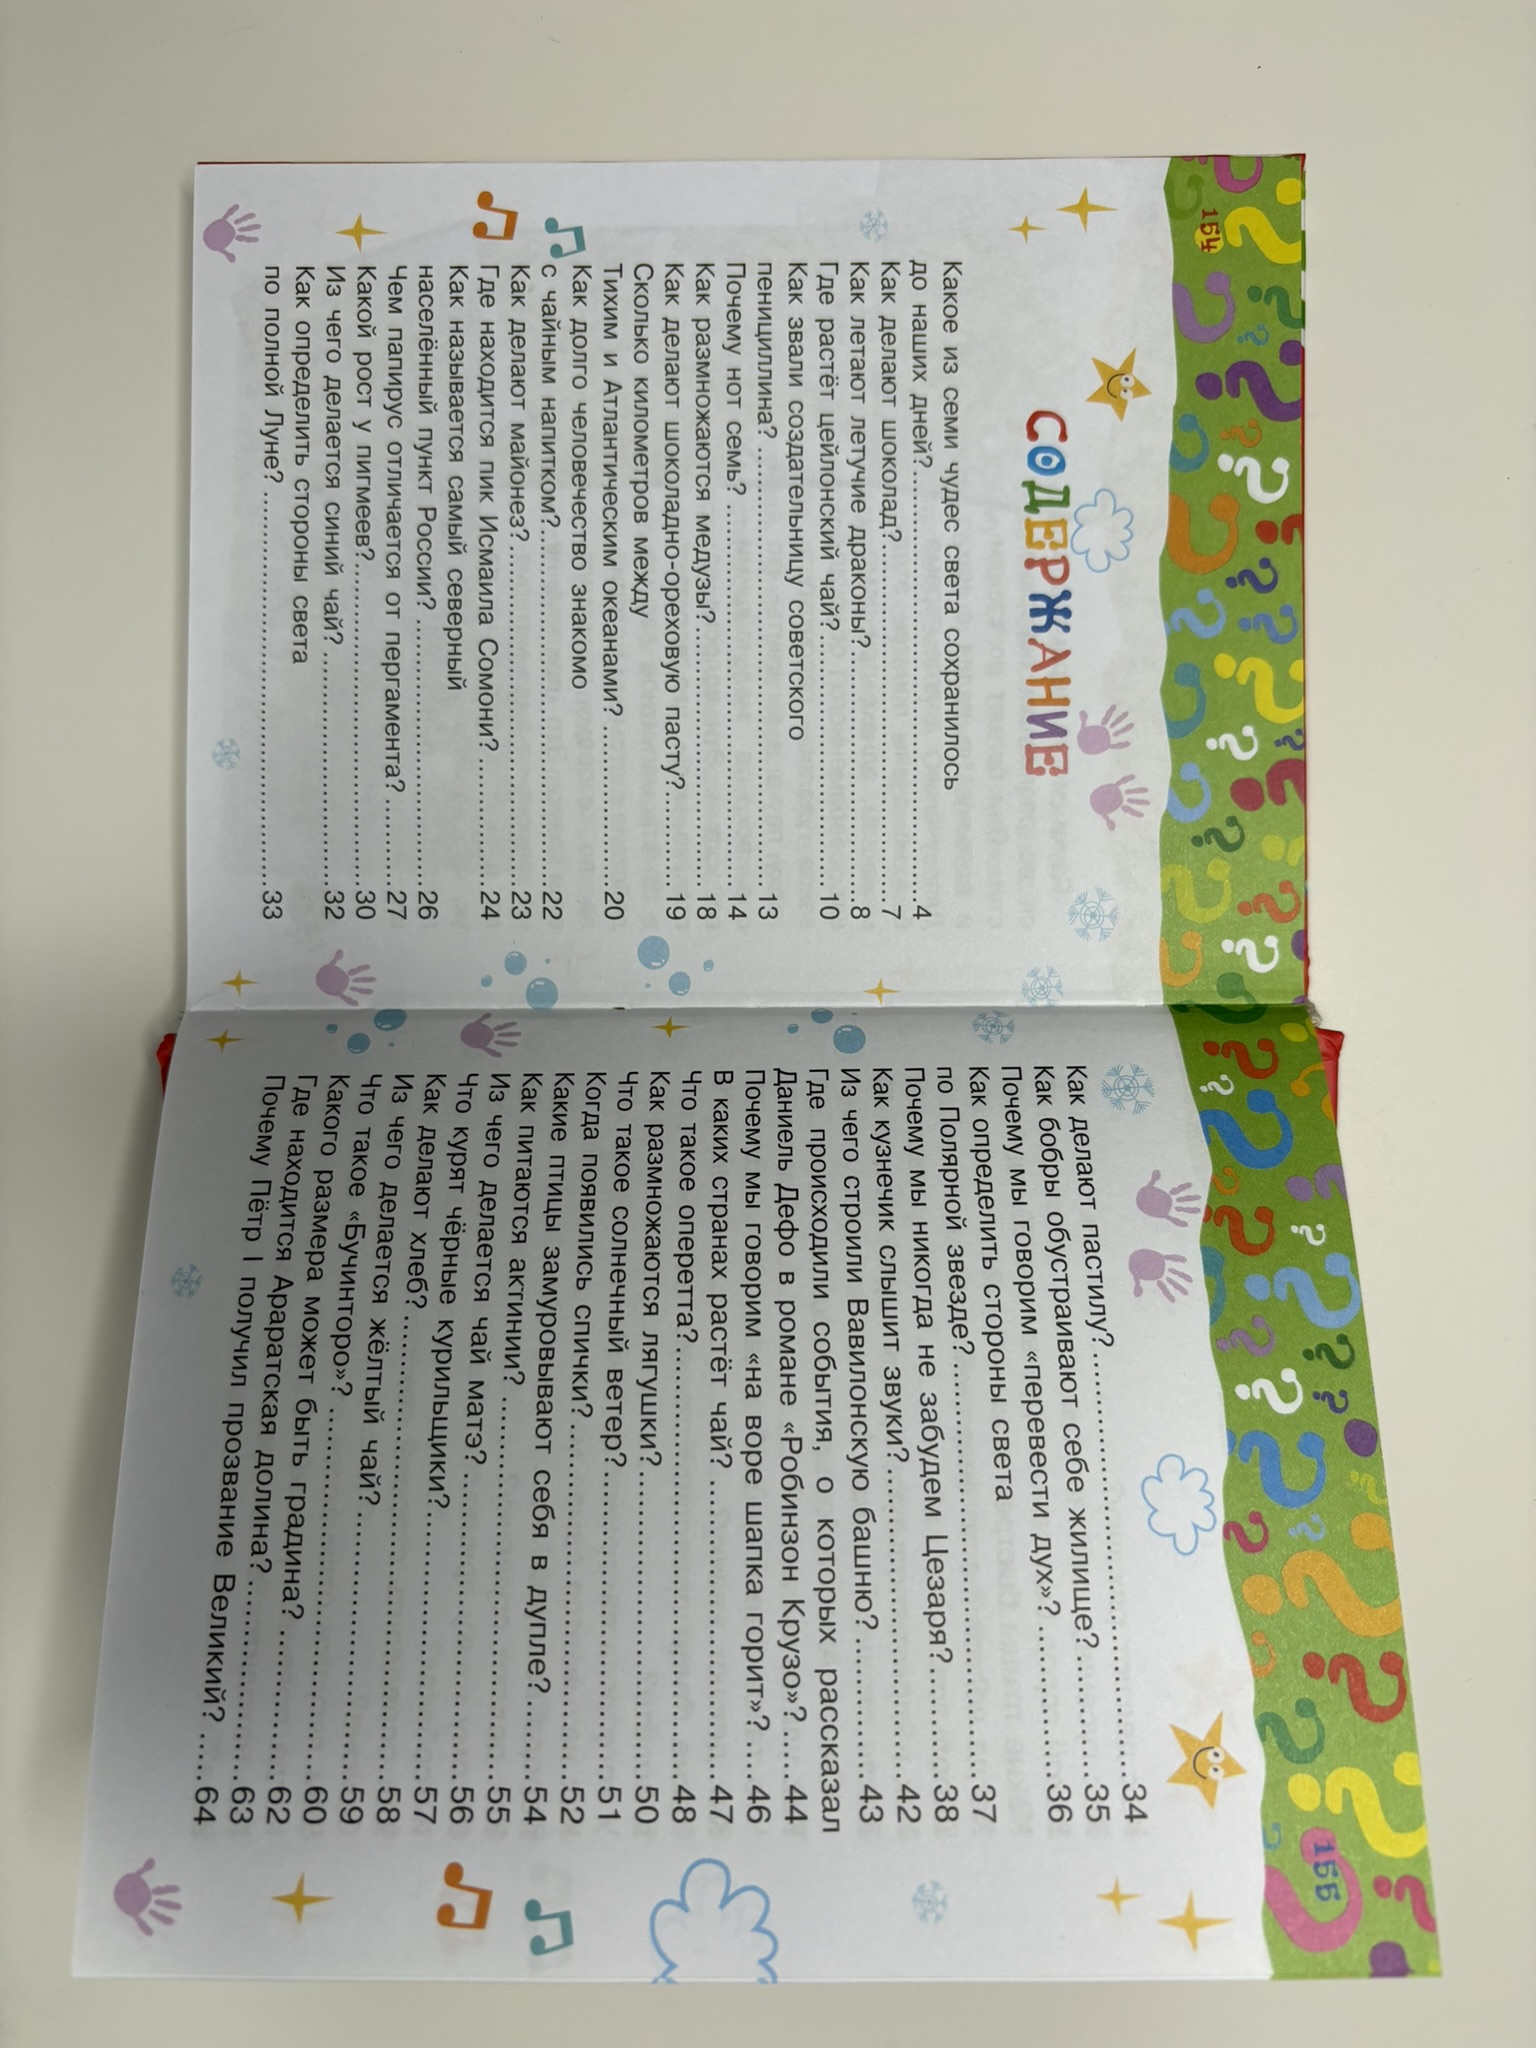 154
СОДЕРЖАНИЕ
Какое из семи чудес света сохранилось
до наших дней?..........4
Как делают шоколад?..........7
Как летают летучие драконы?..........8
Где растёт цейлонский чай?..........10
Как звали создательницу советского
пенициллина?..........13
Почему нот семь?..........14
Как размножаются медузы?..........18
Как делают шоколадно-ореховую пасту?..........19
Сколько километров между
Тихим и Атлантическим океанами?..........20
Как долго человечество знакомо
с чайным напитком?..........22
Как делают майонез?..........23
Где находится пик Исмаила Сомони?..........24
Как называется самый северный
населённый пункт России?..........26
Чем папирус отличается от пергамента?..........27
Какой рост у пигмеев?..........30
Из чего делается синий чай?..........32
Как определить стороны света
по полной Луне?..........33
155
Как делают пастилу?..........34
Как бобры обустраивают себе жилище?..........35
Почему мы говорим «перевести дух»?..........36
Как определить стороны света
по Полярной звезде?..........37
Почему мы никогда не забудем Цезаря?..........38
Как кузнечик слышит звуки?..........42
Из чего строили Вавилонскую башню?..........43
Где происходили события, о которых рассказал
Даниель Дефо в романе «Робинзон Крузо»?....44
Почему мы говорим «на воре шапка горит»?....46
В каких странах растёт чай?..........47
Что такое оперетта?..........48
Как размножаются лягушки?..........50
Что такое солнечный ветер?..........51
Когда появились спички?..........52
Какие птицы замуровывают себя в дупле?......54
Как питаются актинии?..........55
Из чего делается чай матэ?..........56
Что курят чёрные курильщики?..........57
Как делают хлеб?..........58
Из чего делается жёлтый чай?..........59
Что такое «Бучинторо»?..........60
Какого размера может быть градина?..........62
Где находится Араратская долина?..........63
Почему Пётр I получил прозвание Великий?.....64